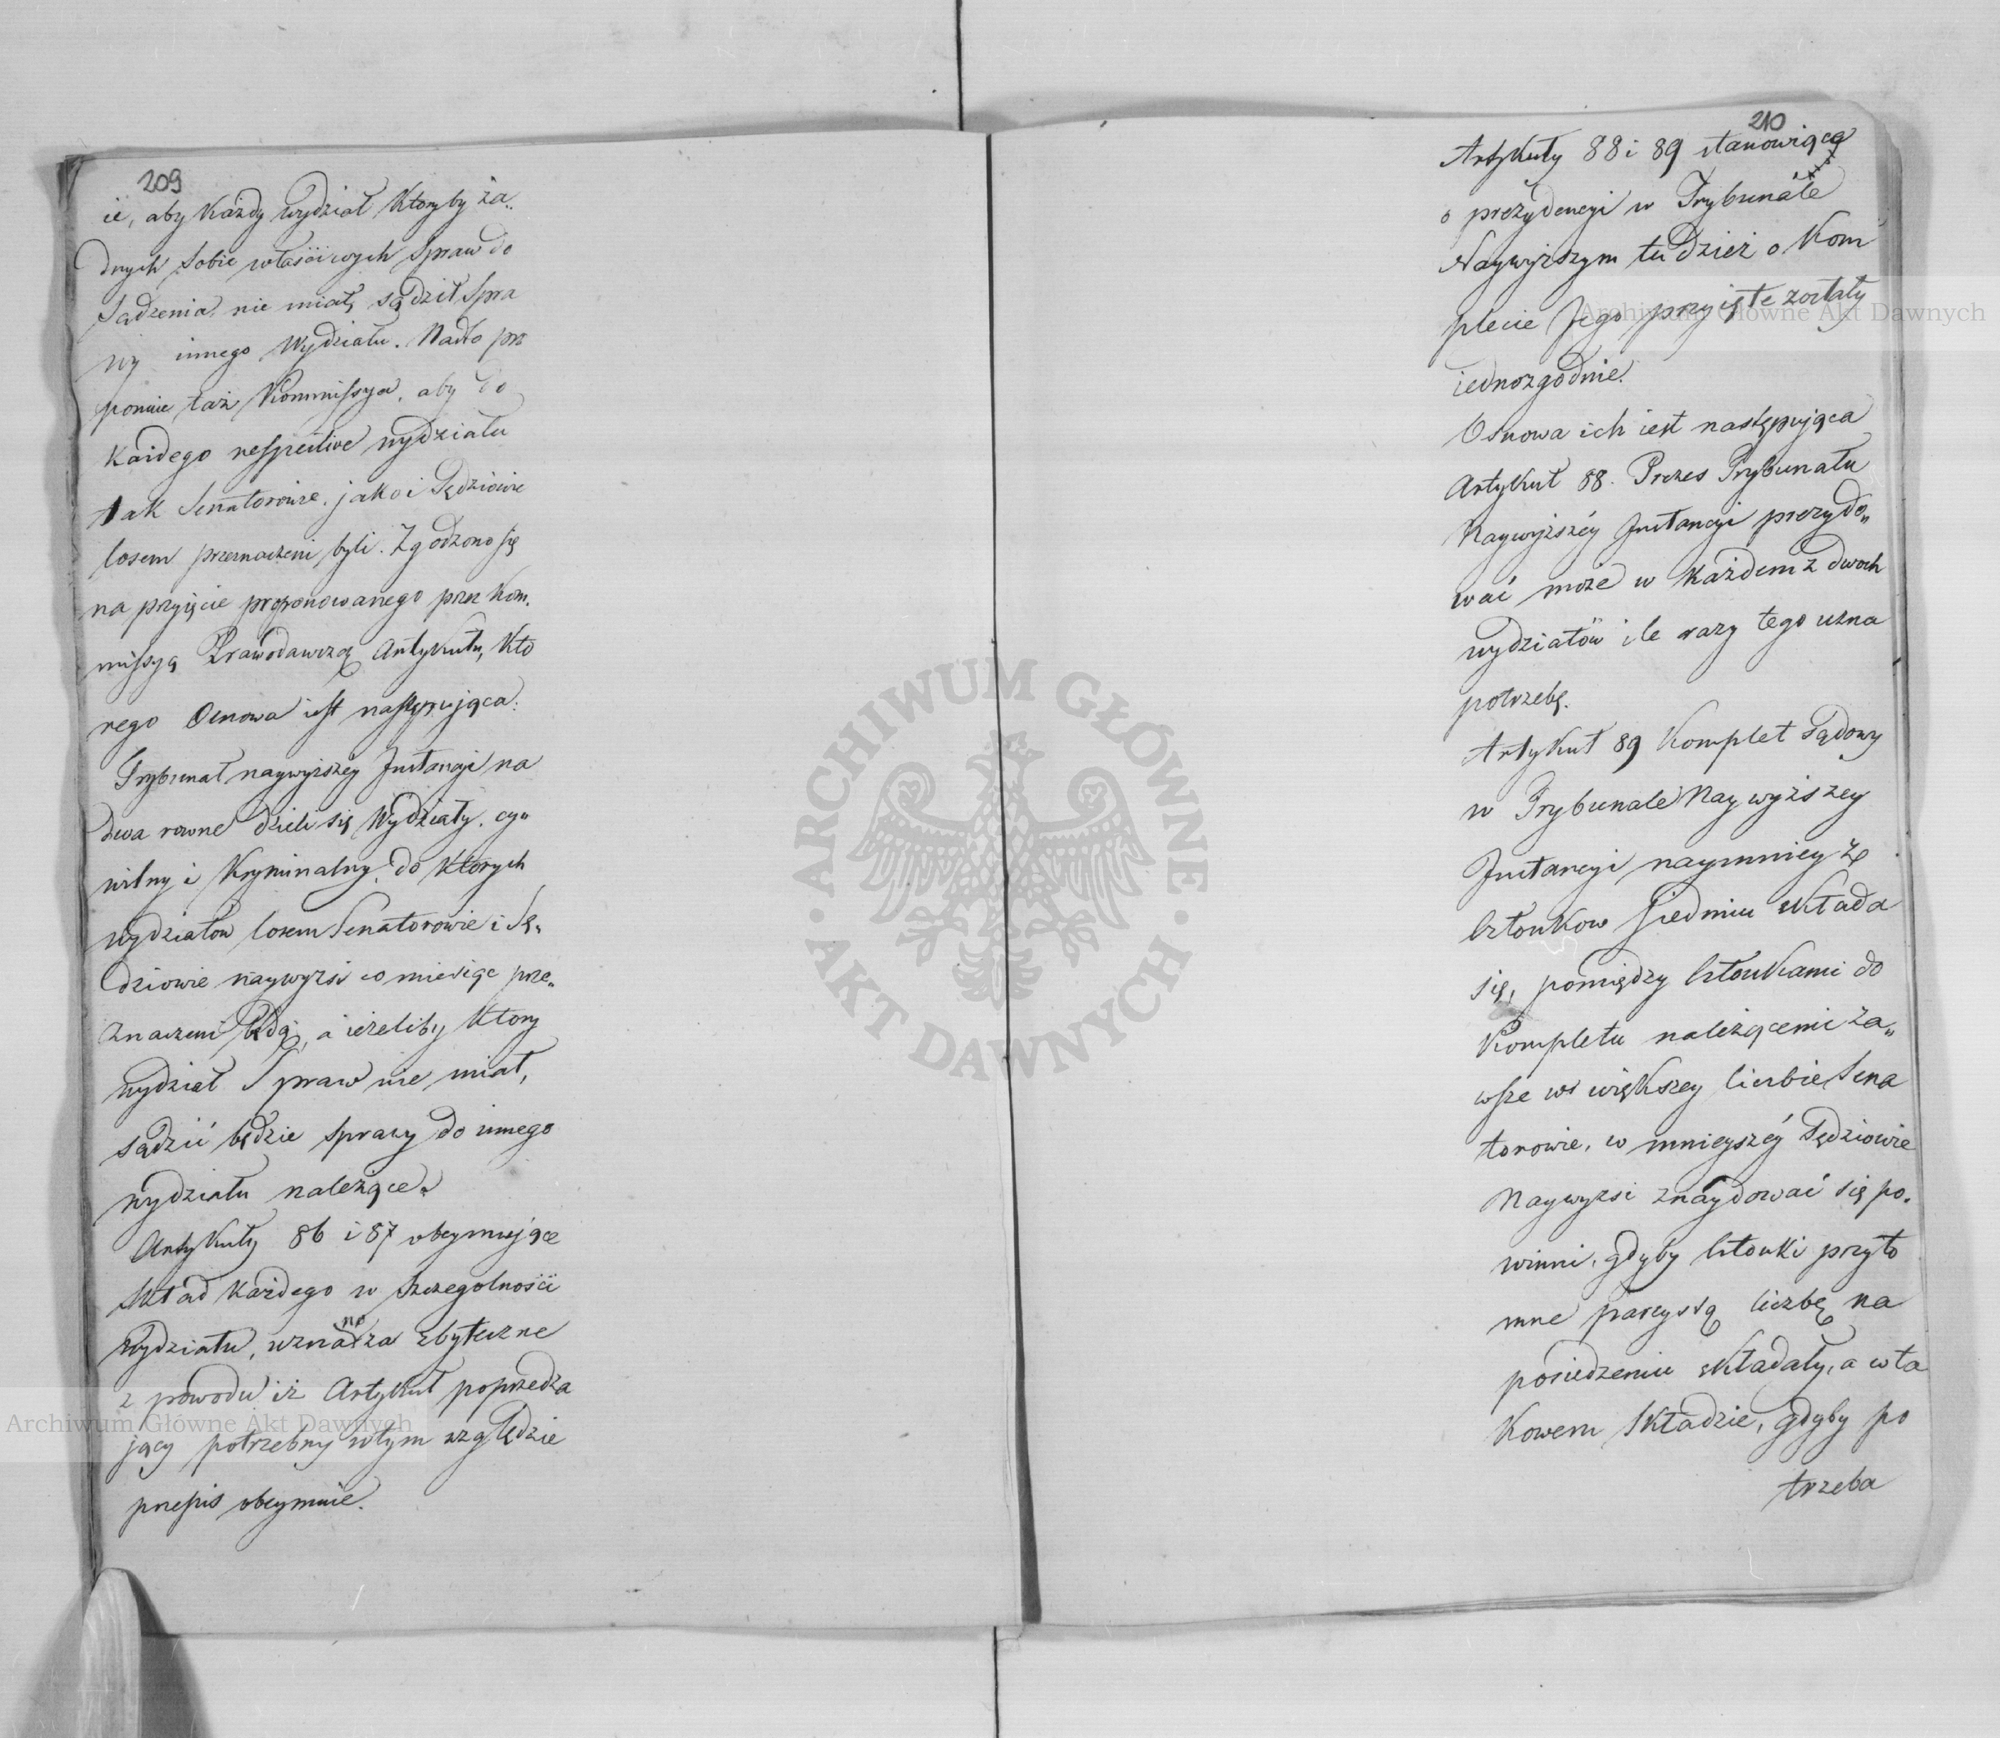 209
ie, aby Każdy wydział Ktoryby ża„
dnych sobie właściwych spraw do
Sądzenia nie miał, sądził Spra
wy innego Wydziału. Nadto pro
ponuie taż Kommissya, aby do
Każdego respective wydziału
tak Senatorowie, jako i Sędziowie
losem przeznaczeni byli. Zgodzono się
na przyięcie proponowanego przez Kom„
missyą Prawodawczą Artykułu, Kto
rego Osnowa iest następuiąca:
Trybunał naywyższéy Instancyi na
dwa rowne dzieli się Wydziały, cy„
wilny i Kryminalny, do Ktorych
wydziałow losem Senatorowie i Sę„
dziowie naywyżsi co miesiąc prze„
znaczeni będą, a ieżeliby Ktory
wydział Spraw nie miał,
sądzić będzie sprawy do innego
wydziału należące.
Artykuły 86 i 87 obeymuiące
Skład Każdego w szczegolności
wydziału, uznano za zbyteczne
z powodu iż Artykuł poprzedza
jący potrzebny w tym względzie
przepis obeymuie.
210
Artykuły 88 i 89 stanowiące
o prezydencyi w Trybunale
Naywyższym tudzież o Kom
plecie Jego przyięte zostały
iednozgodnie.
Osnowa ich iest następuiąca
Artykuł 88. Prezes Trybunału
Naywyższéy Instancyi prezydo„
wać może w Każdem z dwoch
wydziałów ile razy tego uzna
potrzebę.
Artykuł 89 Komplet Sądowy
w Trybunale Naywyższey
Instancyi naymniey z
Członkow siedmiu składa
się, pomiędzy Członkami do
Kompletu należącemi za„
wsze w większey liczbie Sena
torowie, w mnieyszéy Sędziowie
Naywyżsi znaydować się po„
winni, gdyby Członki przyto
mne parzystą liczbę na
posiedzeniu składały, a w ta
Kowem Składzie, gdyby po
trzeba
ARCHIWUM GŁÓWNE AKT DAWNYCH
Archiwum Główne Akt Dawnych
Archiwum Główne Akt Dawnych